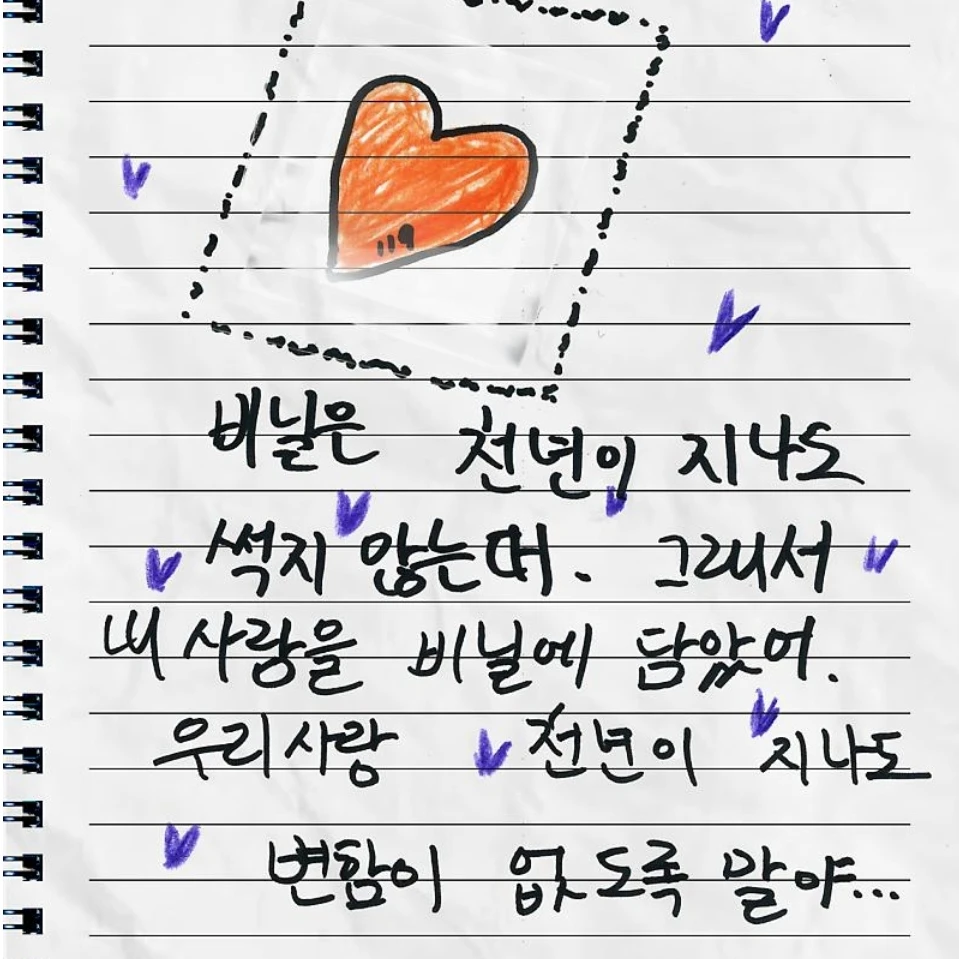 비닐은 천년이 지나도
썩지 않는대. 그래서
내 사랑을 비닐에 담았어.
우리사랑 천년이 지나도
변함이 없도록 말야...